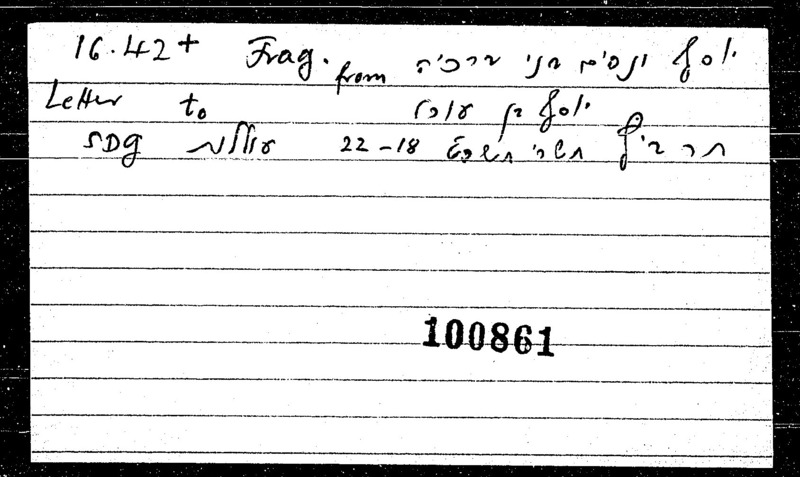 16.42+ Frag. from יוסף ונסים בני ברכיה
Letter to יוסף בן עוכל
SDG תרביץ תשרי תשכט 18-22
100861